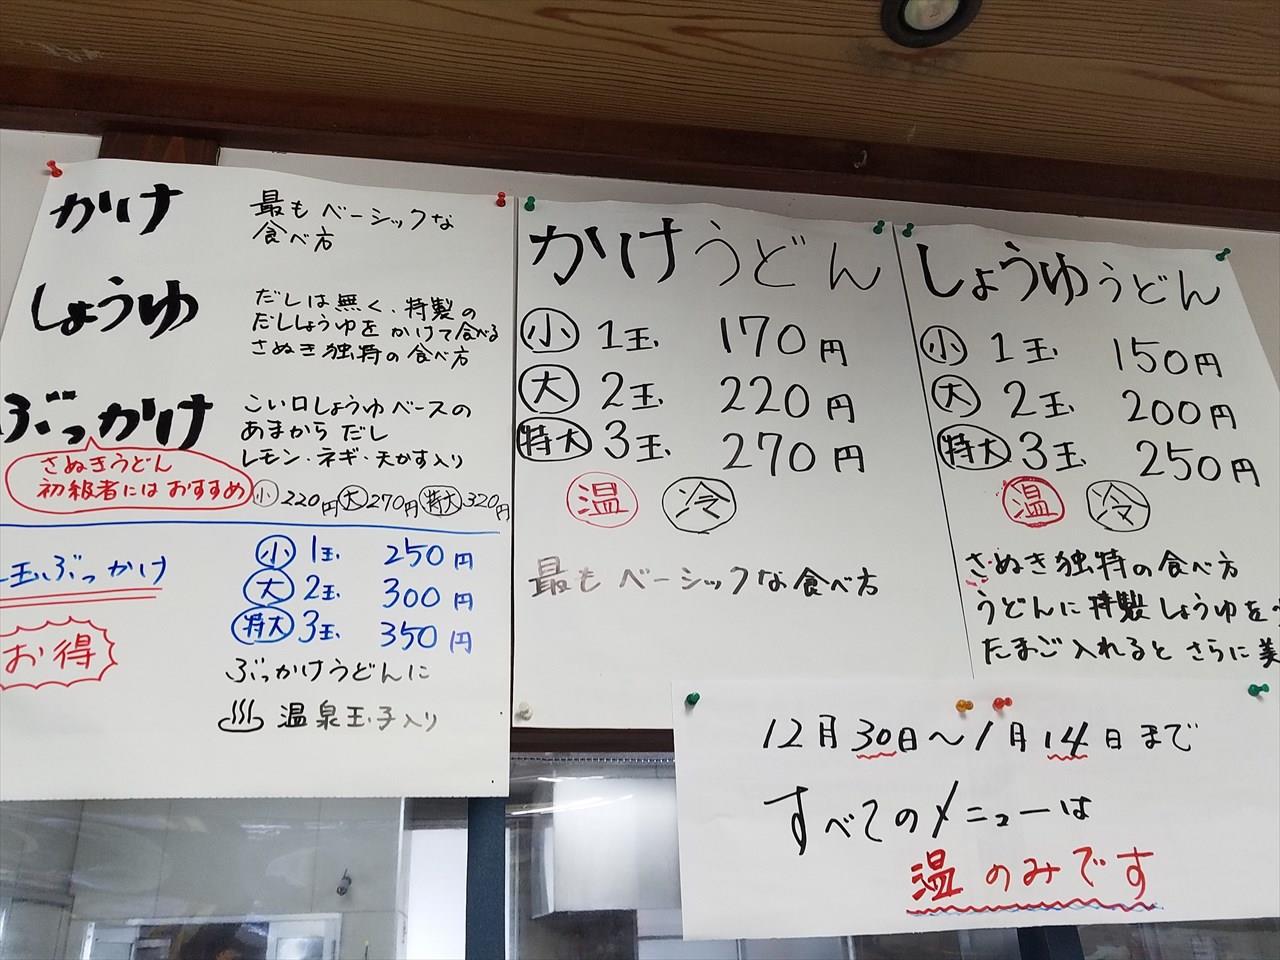 かけ
最もベーシックな
食べ方
しょうゆ
だしは無く、特製の
だししょうゆを かけて食べる
さぬき独特の食べ方
ぶっかけ
こい口しょうゆベースの
あまから だし
レモン・ネギ・天かす入り
さぬきうどん
初級者にはおすすめ
小 220円 大 270円 特大 320円
玉ぶっかけ
お得
小 1玉 250円
大 2玉 300円
特大 3玉 350円
ぶっかけうどんに
♨ 温泉玉子入り
かけうどん
小 1玉 170円
大 2玉 220円
特大 3玉 270円
温 冷
最もベーシックな食べ方
しょうゆうどん
小 1玉 150円
大 2玉 200円
特大 3玉 250円
温 冷
さぬき独特の食べ方
うどんに特製しょうゆを
たまご入れるとさらに美
12月30日〜1月14日まで
すべてのメニューは
温のみです